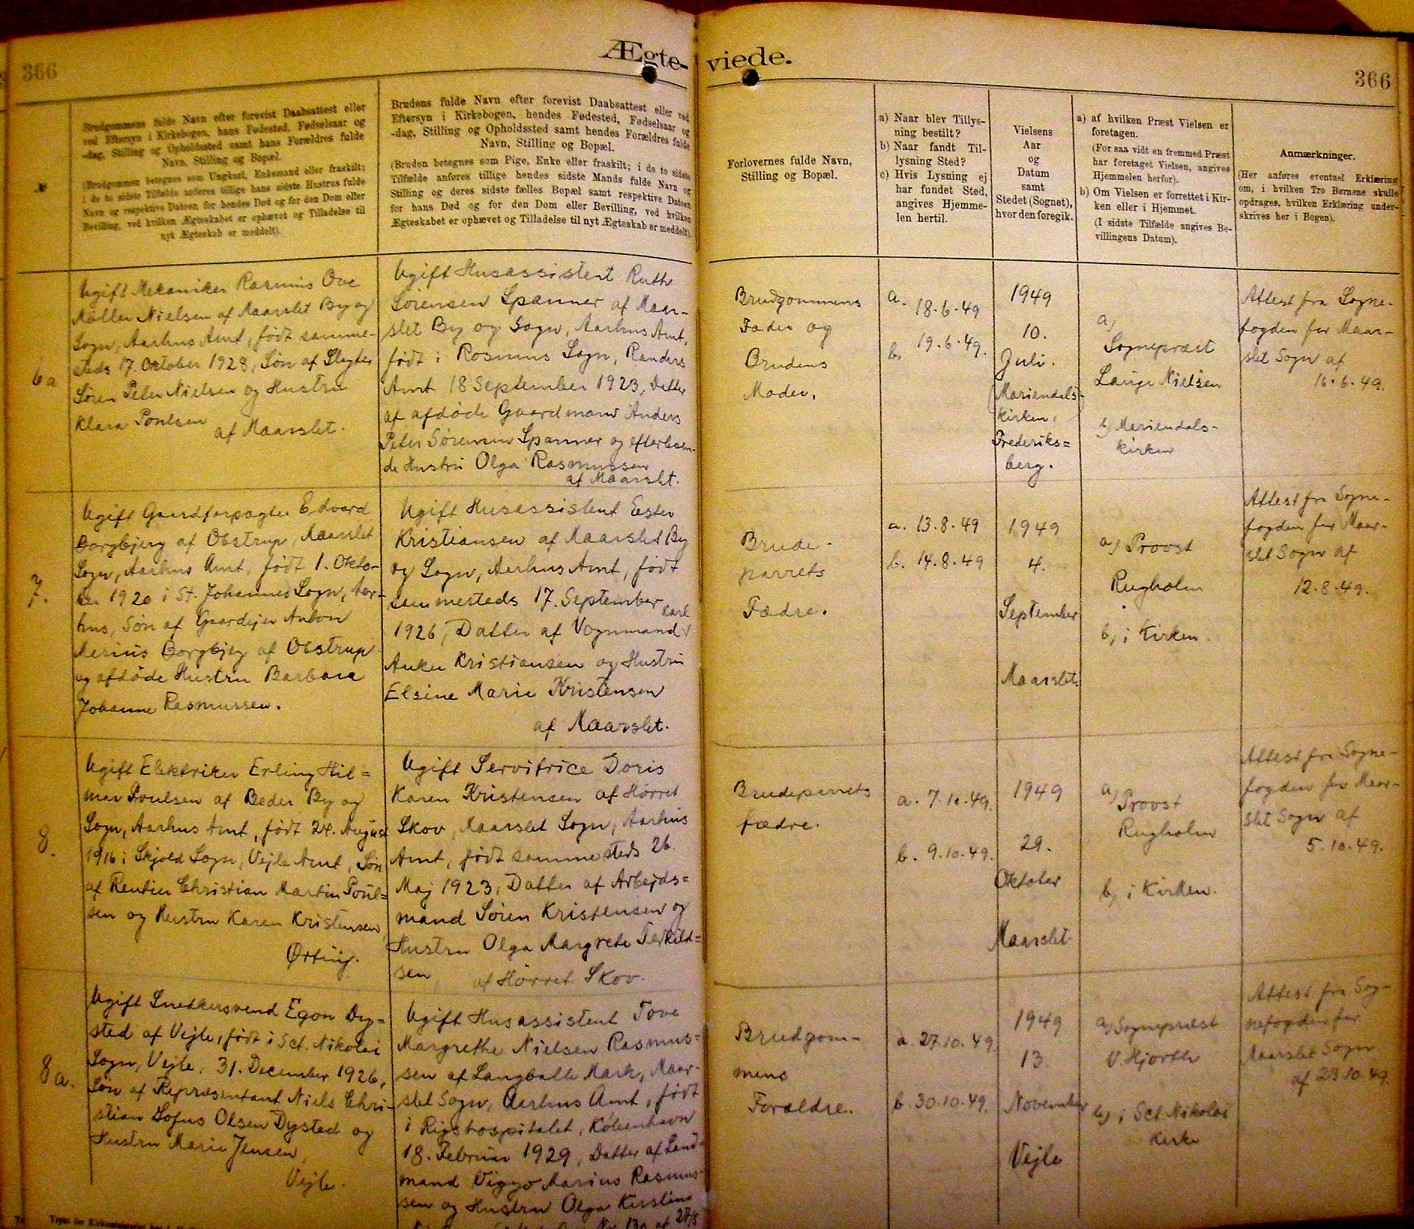 366
Ægte-
viede.
366
№
Brudgommens fulde Navn efter forevist Daabsattest eller
ved Eftersyn i Kirkebogen, hans Fødested, Fødselsaar og
-dag, Stilling og Opholdssted samt hans Forældres fulde
Navn, Stilling og Bopæl.
(Brudgommen betegnes som Ungkarl, Enkemand eller fraskilt;
i de to sidste Tilfælde anføres tillige hans sidste Hustrus fulde
Navn og respektive Datoen for hendes Død og for den Dom eller
Bevilling, ved hvilken Ægteskabet er ophævet og Tilladelse til
nyt Ægteskab er meddelt).
Brudens fulde Navn efter forevist Daabsattest eller ved
Eftersyn i Kirkebogen, hendes Fødested, Fødselsaar og
-dag, Stilling og Opholdssted samt hendes Forældres fulde
Navn, Stilling og Bopæl.
(Bruden betegnes som Pige, Enke eller fraskilt; i de to sidste
Tilfælde anføres tillige hendes sidste Mands fulde Navn og
Stilling og deres sidste fælles Bopæl samt respektive Datoen
for hans Død og for den Dom eller Bevilling, ved hvilken
Ægteskabet er ophævet og Tilladelse til nyt Ægteskab er meddelt).
Forlovernes fulde Navn,
Stilling og Bopæl.
a) Naar blev Tillys-
ning bestilt?
b) Naar fandt Til-
lysning Sted?
c) Hvis Lysning ej
har fundet Sted,
angives Hjemme-
len hertil.
Vielsens
Aar
og
Datum
samt
Stedet (Sognet),
hvor den foregik.
a) af hvilken Præst Vielsen er
foretagen.
(For saa vidt en fremmed Præst
har foretaget Vielsen, angives
Hjemmelen herfor).
b) Om Vielsen er forrettet i Kir-
ken eller i Hjemmet.
(I sidste Tilfælde angives Be-
villingens Datum).
Anmærkninger.
(Her anføres eventuel Erklæring
om, i hvilken Tro Børnene skulle
opdrages, hvilken Erklæring under-
skrives her i Bogen).
6a
Ugift Mekaniker Rasmus Ove
Møller Nielsen af Maarslet By og
Sogn, Aarhus Amt, født samme-
steds 17. Oktober 1928, Søn af Slagter
Søren Peter Nielsen og Hustru
Klara Poulsen
af Maarslet.
Ugift Husassistent Ruth
Sørensen Spanner af Maar-
slet By og Sogn, Aarhus Amt,
født i Rosmus Sogn, Randers
Amt 18 September 1923, Datter
af afdøde Gaardmand Anders
Peter Sørensen Spanner og efterleven-
de Hustru Olga Rasmussen
af Maarslet.
Brudgommens
Fader og
Brudens
Moder.
a. 18-6-49
b. 19-6-49.
1949
10.
Juli.
(Mariendals-
kirken,
Frederiks=
berg.
a)
Sognepræst
Lauge Nielsen
b) Mariendals-
kirken
Attest fra Sogne-
fogden for Maar-
slet Sogn af
16-6-49.
7.
Ugift Gaardforpagter Edvard
Borgbjerg af Obstrup, Maarslet
Sogn, Aarhus Amt, født 1. Okto-
ber 1920 i St. Johannes Sogn, Aar-
hus, Søn af Gaardejer Anton
Marius Borgbjerg af Obstrup
og afdøde Hustru Barbara
Johanne Rasmussen.
Ugift Husassistent Ester
Kristiansen af Maarslet By
og Sogn, Aarhus Amt, født
sammesteds 17. September
1926, Datter af Vognmand Karl
Anker Kristiansen og Hustru
Elsine Marie Kristensen
af Maarslet.
Brude-
parrets
Fædre.
a. 13-8-49
b. 14-8-49
1949
4.
September
Maarslet.
a) Provst
Rugholm
b) i Kirken.
Attest fra Sogne-
fogden for Maar-
slet Sogn af
12-8-49.
8.
Ugift Elektriker Erling Hil=
mar Poulsen af Beder By og
Sogn, Aarhus Amt, født 24. August
1916 i Skjold Sogn, Vejle Amt, Søn
af Rentier Christian Martin Poul=
sen og Hustru Karen Kristensen,
Ørting.
Ugift Servitrice Doris
Karen Kristensen af Hørret
Skov, Maarslet Sogn, Aarhus
Amt, født sammesteds 26.
Maj 1923, Datter af Arbejds=
mand Søren Kristensen og
Hustru Olga Margrete Terkild=
sen, af Hørret Skov.
Brudeparrets
fædre.
a. 7-10-49.
b. 9-10-49.
1949
29.
Oktober
Maarslet.
a)
Provst
Rugholm
b) i Kirken.
Attest fra Sogne-
fogden for Maar-
slet Sogn af
5-10-49.
8a.
Ugift Snedkersvend Egon Dy-
sted af Vejle, født i Sct. Nikolai
Sogn, Vejle, 31. December 1926,
Søn af Repræsentant Niels Chri-
stian Sofus Olsen Dysted og
Hustru Marie Jensen,
Vejle.
Ugift Husassistent Tove
Margrethe Nielsen Rasmus=
sen af Langballe Mark, Maar-
slet Sogn, Aarhus Amt, født
i Rigshospitalet, København
18. Februar 1929, Datter af Land=
mand Viggo Marius Rasmus-
sen og Hustru Olga Kirstine
Brudgom-
mens
Forældre.
a. 27-10-49.
b. 30-10-49.
1949
13.
November
Vejle
a) Sognepræst
V. Hjorth
b) i Sct. Nikolai
Kirke
Attest fra Sog-
nefogden for
Maarslet Sogn
af 23-10-49.